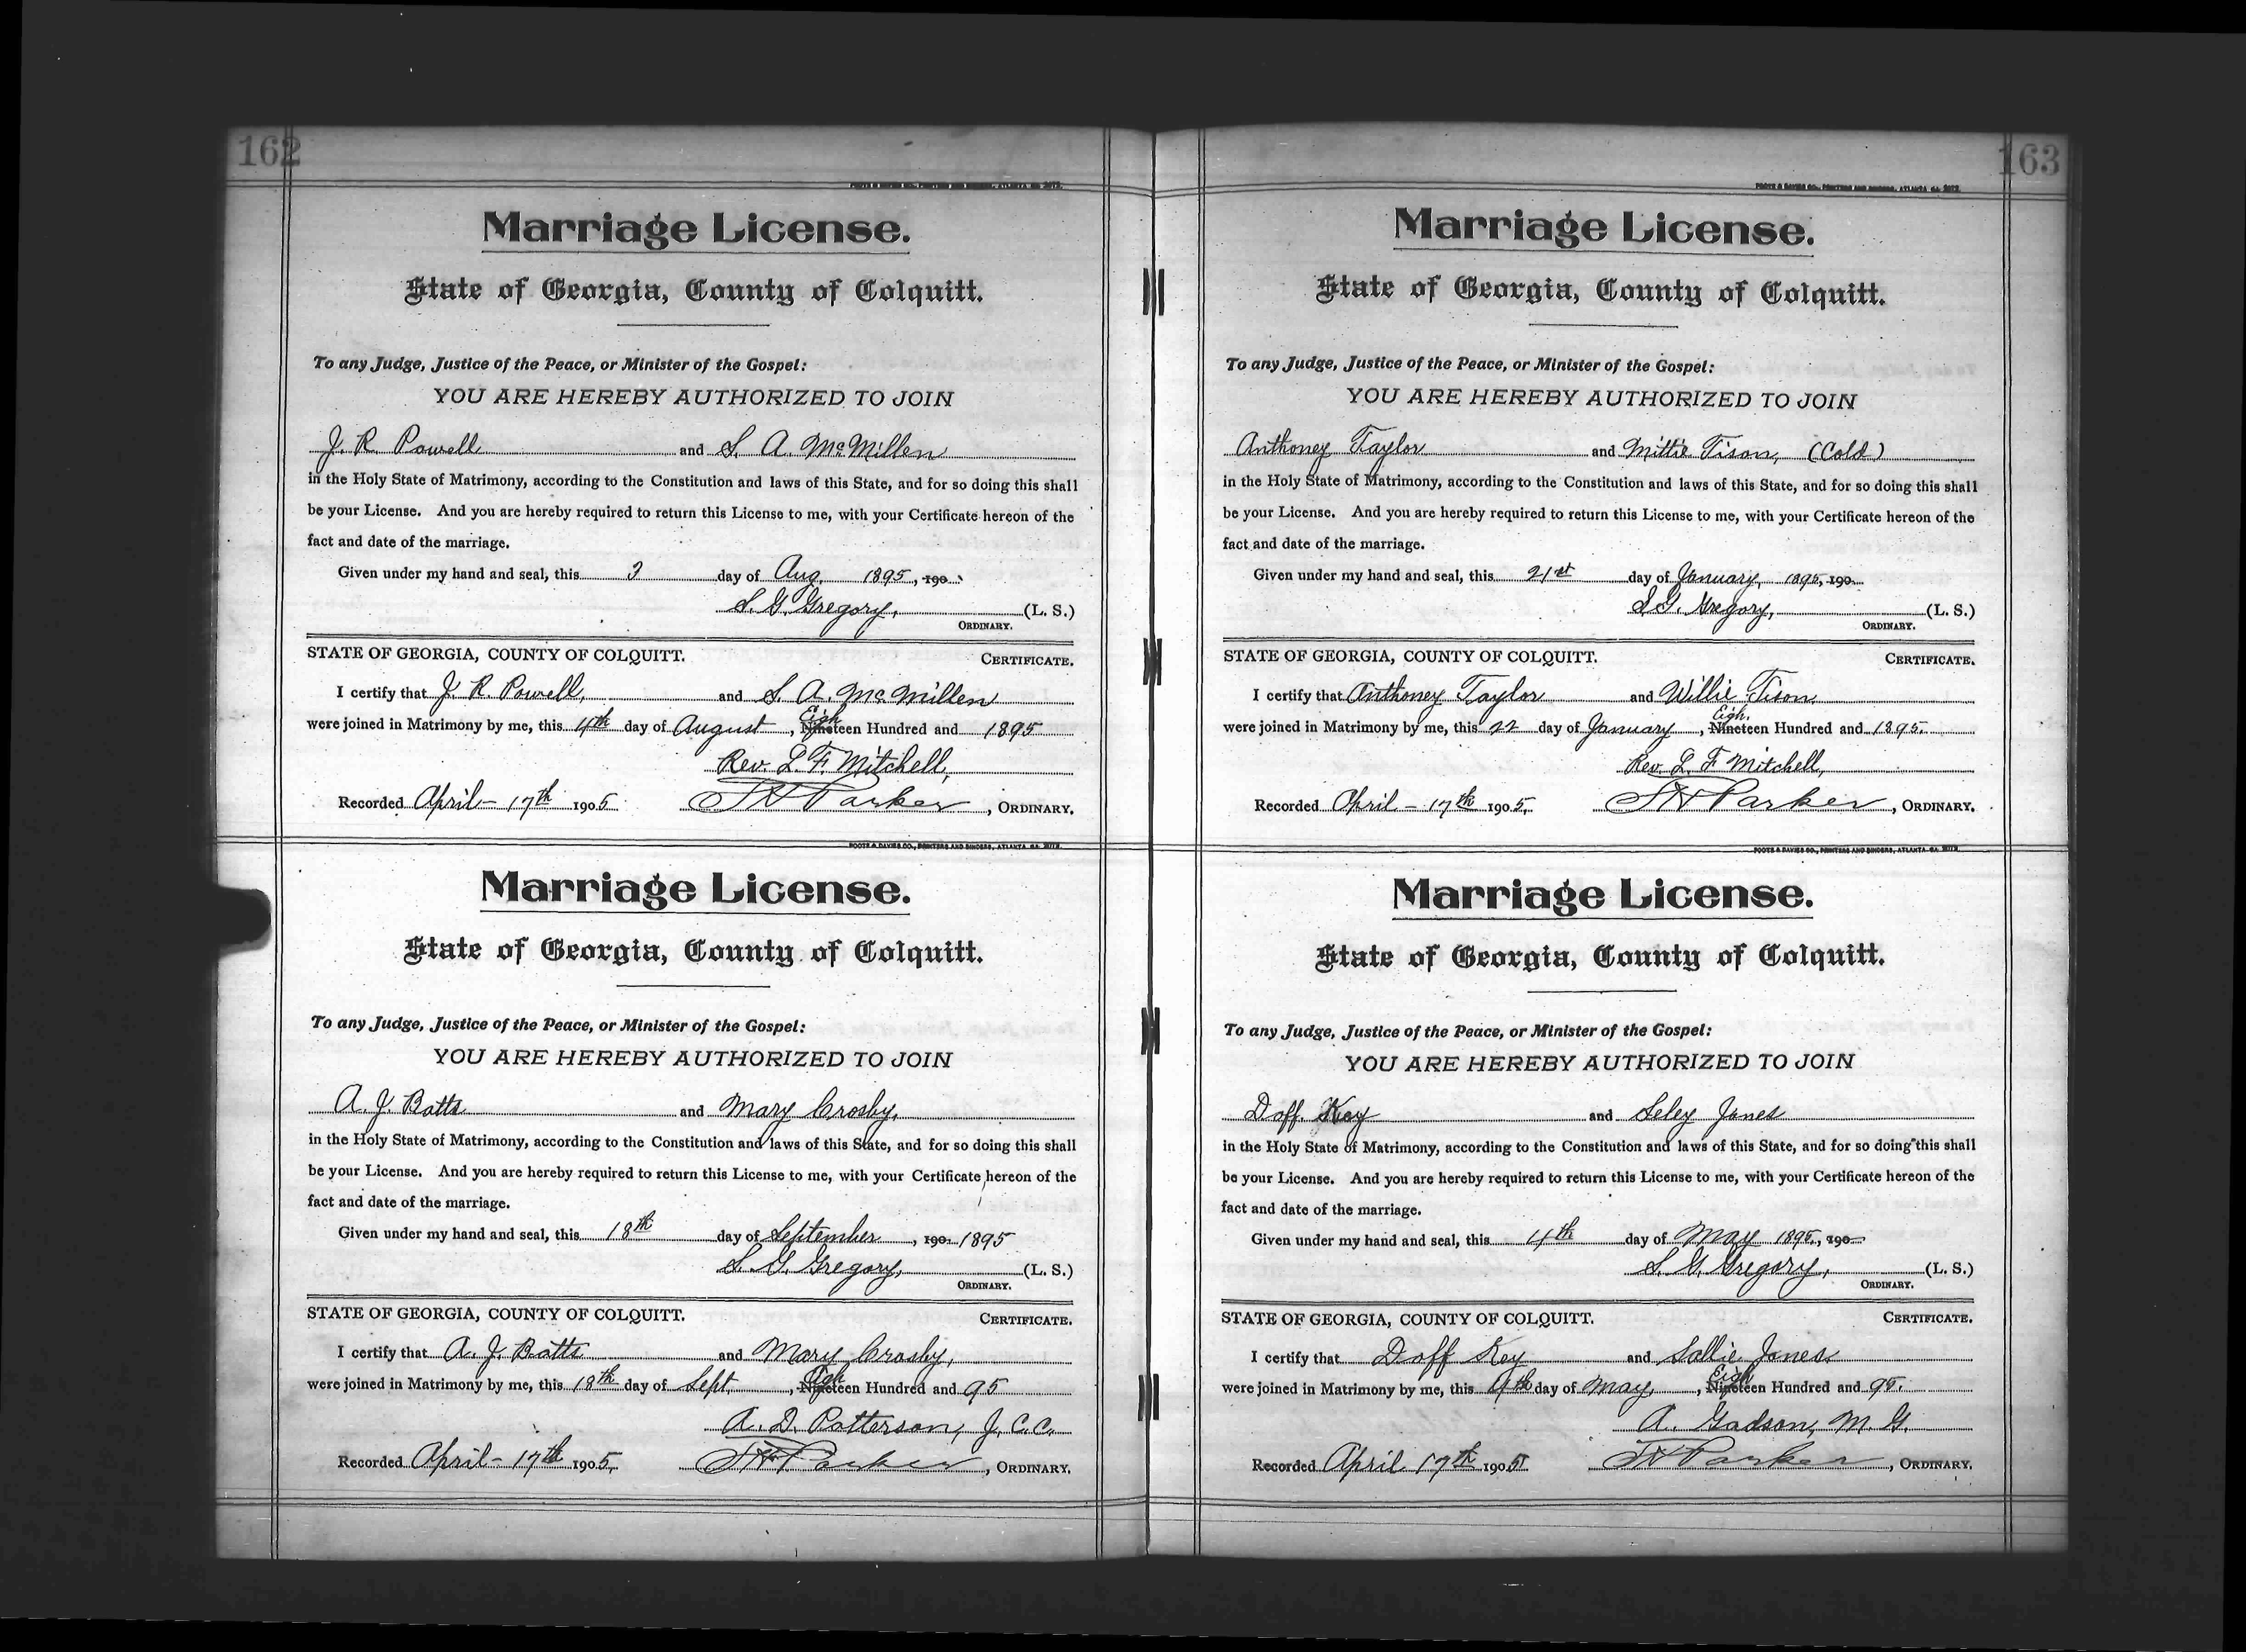 162
FOOTE & DAVIES CO., PRINTERS AND BINDERS, ATLANTA, GA.
Marriage License.
State of Georgia, County of Colquitt.
To any Judge, Justice of the Peace, or Minister of the Gospel:
YOU ARE HEREBY AUTHORIZED TO JOIN
J. R. Powell and S. A. McMillen
in the Holy State of Matrimony, according to the Constitution and laws of this State, and for so doing this shall
be your License. And you are hereby required to return this License to me, with your Certificate hereon of the
fact and date of the marriage.
Given under my hand and seal, this 3 day of Aug. 1895, 190
S. G. Gregory, (L. S.)
ORDINARY.
STATE OF GEORGIA, COUNTY OF COLQUITT. CERTIFICATE.
I certify that J. R. Powell, and S. A. McMillen
were joined in Matrimony by me, this 4th day of August, Eigh Nineteen Hundred and 1895
Rev. L. F. Mitchell,
Recorded April - 17th 1905 , ORDINARY.
J H Parker
FOOTE & DAVIES CO., PRINTERS AND BINDERS, ATLANTA, GA.
Marriage License.
State of Georgia, County of Colquitt.
To any Judge, Justice of the Peace, or Minister of the Gospel:
YOU ARE HEREBY AUTHORIZED TO JOIN
A. J. Batts and Mary Crosby,
in the Holy State of Matrimony, according to the Constitution and laws of this State, and for so doing this shall
be your License. And you are hereby required to return this License to me, with your Certificate hereon of the
fact and date of the marriage.
Given under my hand and seal, this 18th day of September, 190 1895
S. G. Gregory, (L. S.)
ORDINARY.
STATE OF GEORGIA, COUNTY OF COLQUITT. CERTIFICATE.
I certify that A. J. Batts and Mary Crosby,
were joined in Matrimony by me, this 18th day of Sept., Eigh Nineteen Hundred and 95
A. D. Patterson, J. C. C.
Recorded April - 17th 1905, J H Parker, ORDINARY.
163
FOOTE & DAVIES CO., PRINTERS AND BINDERS, ATLANTA, GA.
Marriage License.
State of Georgia, County of Colquitt.
To any Judge, Justice of the Peace, or Minister of the Gospel:
YOU ARE HEREBY AUTHORIZED TO JOIN
Anthoney Taylor and Mittie Tison, (Cold)
in the Holy State of Matrimony, according to the Constitution and laws of this State, and for so doing this shall
be your License. And you are hereby required to return this License to me, with your Certificate hereon of the
fact and date of the marriage.
Given under my hand and seal, this 21st day of January, 1895, 190
S. G. Gregory, (L. S.)
ORDINARY.
STATE OF GEORGIA, COUNTY OF COLQUITT. CERTIFICATE.
I certify that Anthoney Taylor and Willie Tison
were joined in Matrimony by me, this 22 day of January, Eigh. Nineteen Hundred and 1895.
Rev. L. F. Mitchell,
Recorded April - 17th 1905, J H Parker, ORDINARY.
FOOTE & DAVIES CO., PRINTERS AND BINDERS, ATLANTA, GA.
Marriage License.
State of Georgia, County of Colquitt.
To any Judge, Justice of the Peace, or Minister of the Gospel:
YOU ARE HEREBY AUTHORIZED TO JOIN
Doff. Key and Seley Jones
in the Holy State of Matrimony, according to the Constitution and laws of this State, and for so doing this shall
be your License. And you are hereby required to return this License to me, with your Certificate hereon of the
fact and date of the marriage.
Given under my hand and seal, this 4th day of May 1895, 190
S. G. Gregory, (L. S.)
ORDINARY.
STATE OF GEORGIA, COUNTY OF COLQUITT. CERTIFICATE.
I certify that Doff Key and Sallie Jones
were joined in Matrimony by me, this 4th day of May, Eigh Nineteen Hundred and 95.
A. Gadson, M. G.
Recorded April 17th 1905 J H Parker, ORDINARY.